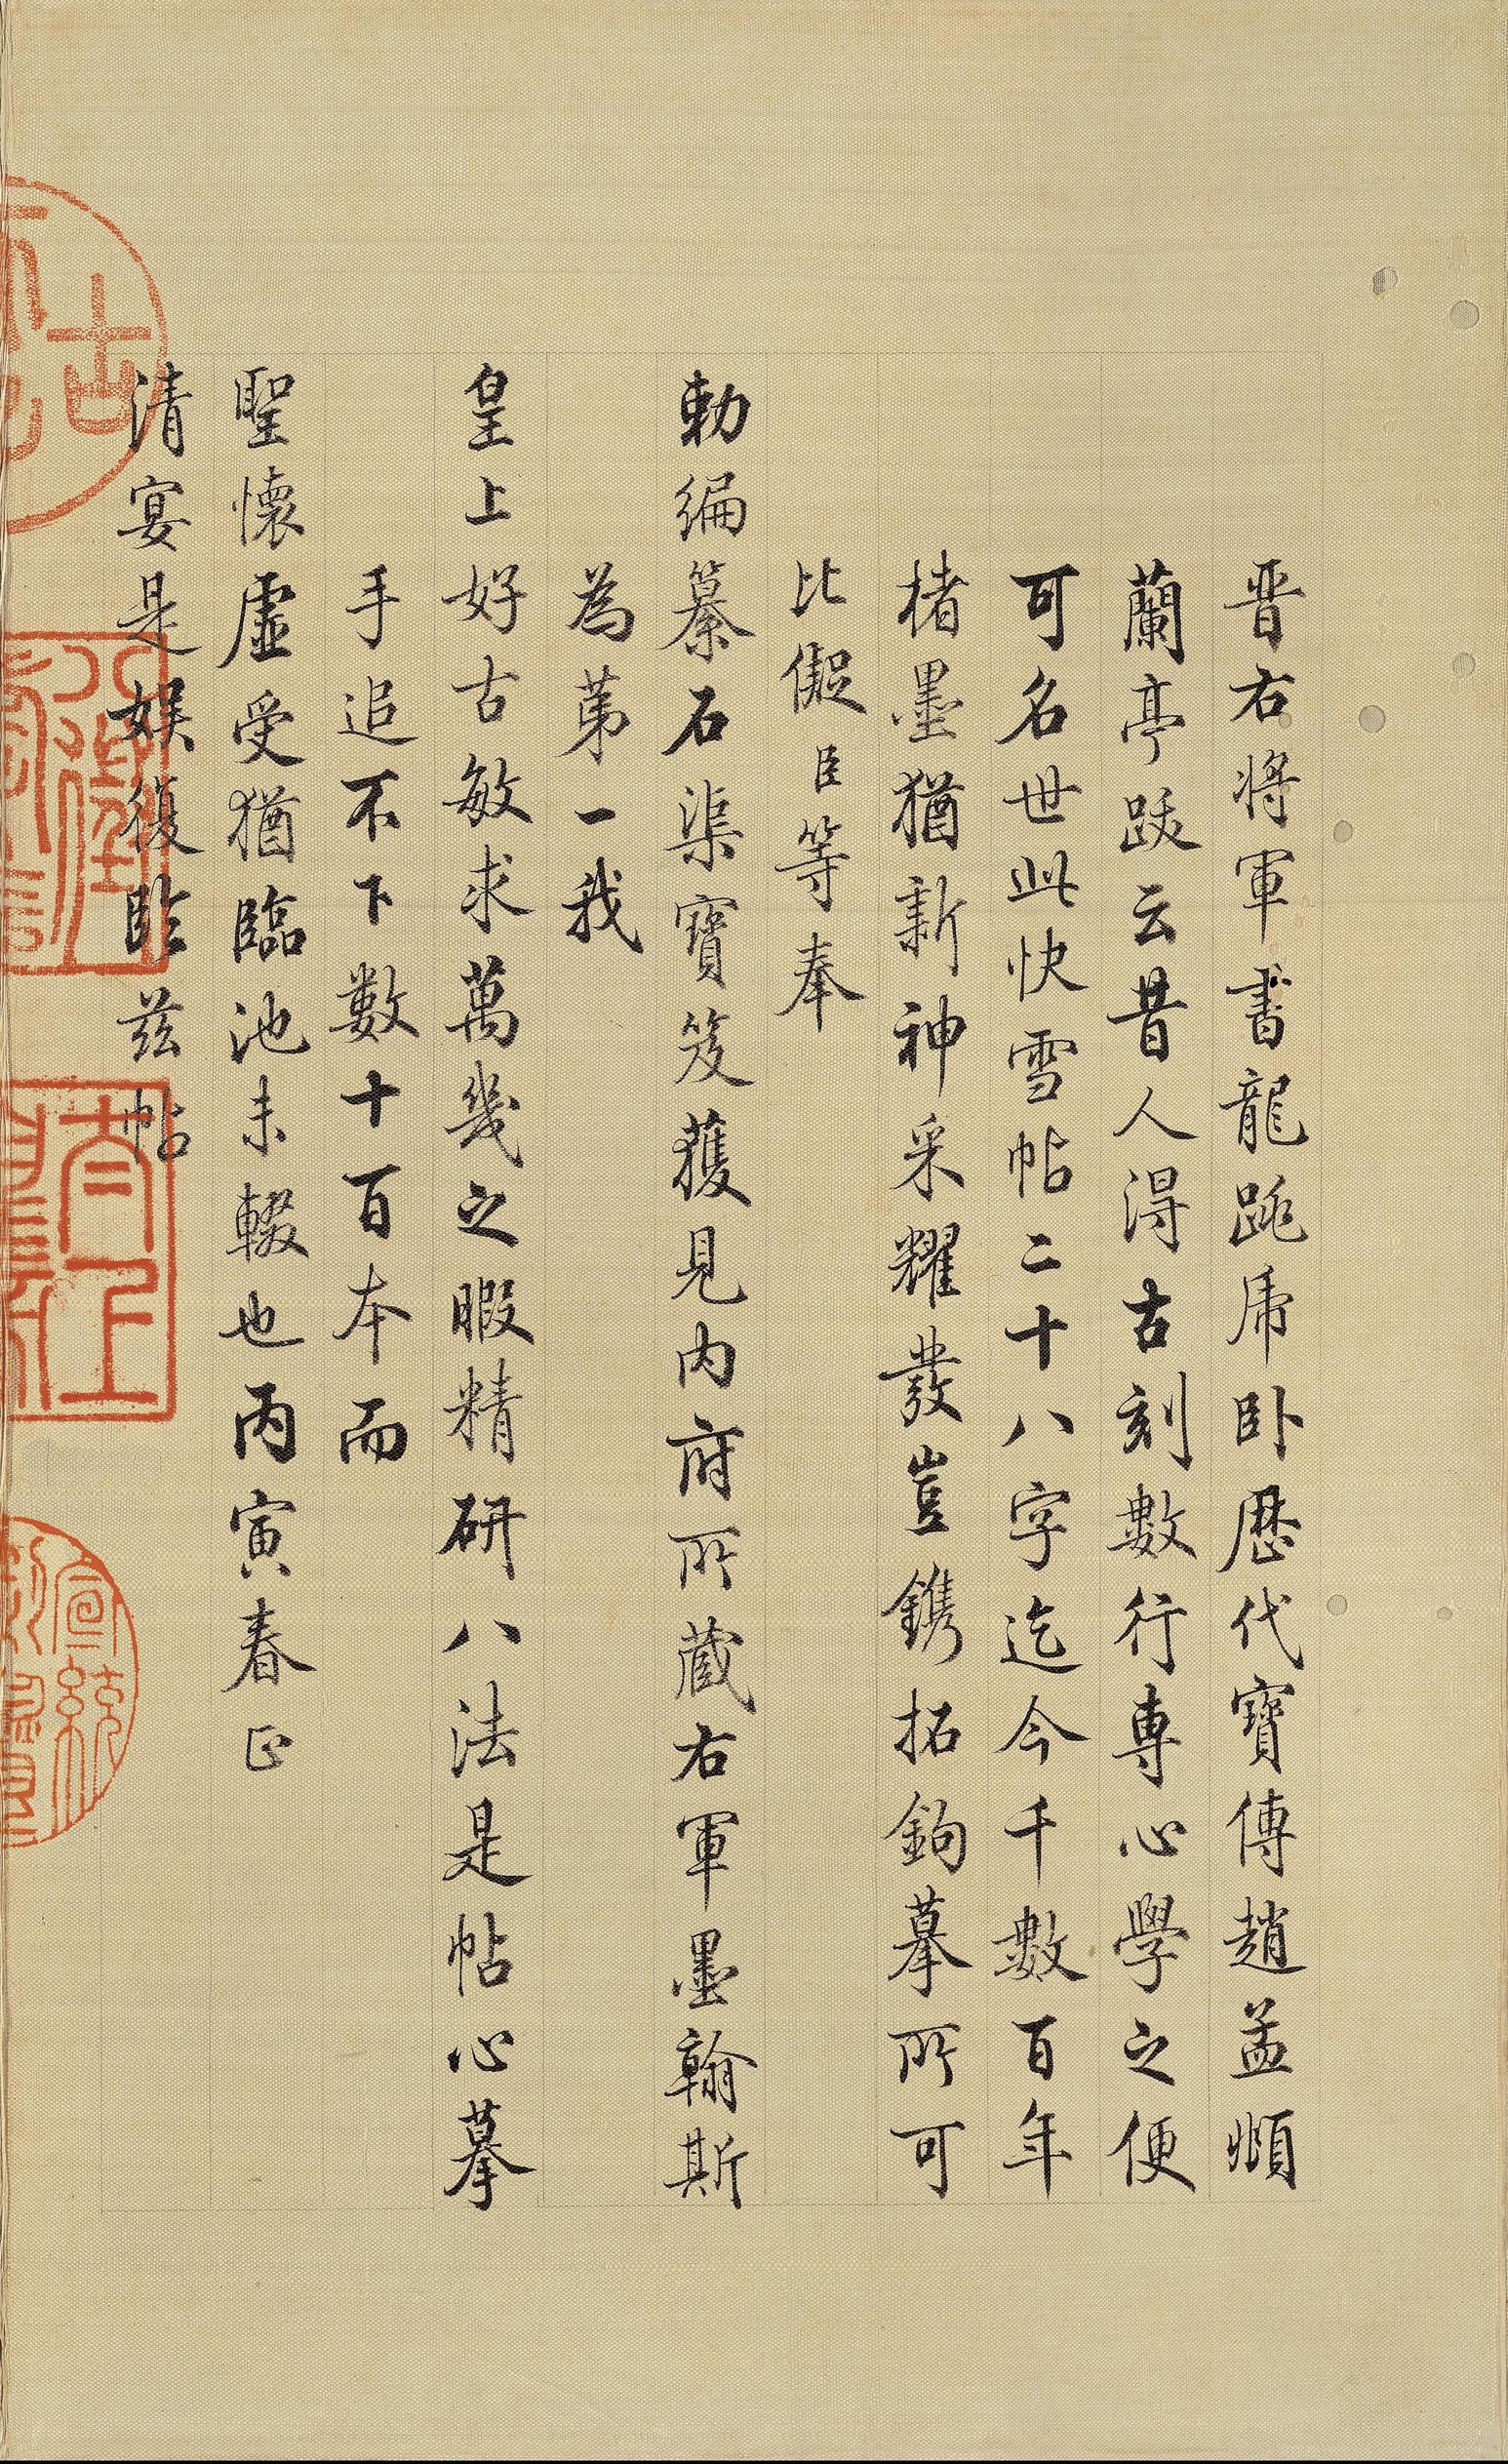 晋右將軍書龍跳虎卧歷代寶傳趙孟頫
蘭亭跋云昔人得古刻數行專心學之便
可名世此快雪帖二十八字迄今千數百年
楮墨猶新神采耀發豈鐫拓鉤摹所可
比儗臣等奉
勅編纂石渠寶笈獲見內府所蔵右軍墨翰斯
為苐一我
皇上好古敏求萬幾之暇精研八法是帖心摹
手追不下數十百本而
聖懷虛受猶臨池未輟也丙寅春正
清宴是娛復臨兹帖